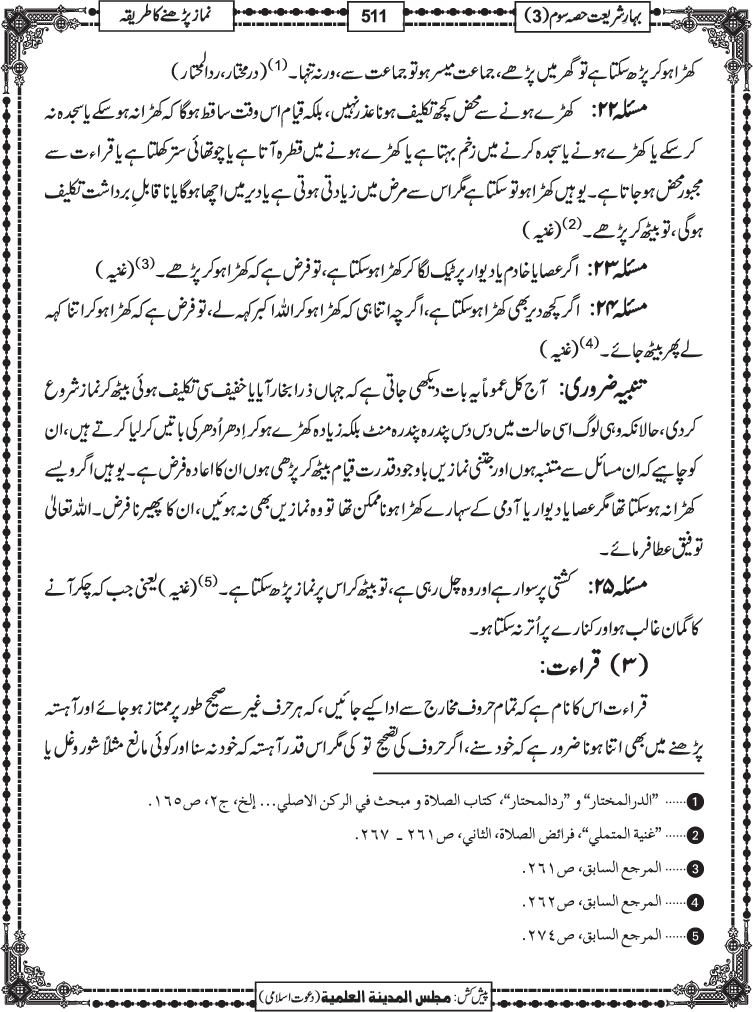 بہارِ شریعت حصہ سوم (3)
511
نماز پڑھنے کا طریقہ
کھڑا ہو کر پڑھ سکتا ہے تو گھر میں پڑھے، جماعت میسر ہو تو جماعت سے، ورنہ تنہا۔ (1) (درمختار، ردالمحتار)
مسئلہ ۲۲: کھڑے ہونے سے محض کچھ تکلیف ہونا عذر نہیں، بلکہ قیام اس وقت ساقط ہوگا کہ کھڑا نہ ہو سکے یا سجدہ نہ
کر سکے یا کھڑے ہونے یا سجدہ کرنے میں زخم بہتا ہے یا کھڑے ہونے میں قطرہ آتا ہے یا چوتھائی ستر کھلتا ہے یا قراءت سے
مجبور محض ہو جاتا ہے۔ یوہیں کھڑا ہو تو سکتا ہے مگر اس سے مرض میں زیادتی ہوتی ہے یا دیر میں اچھا ہوگا یا ناقابلِ برداشت تکلیف
ہوگی، تو بیٹھ کر پڑھے۔ (2) (غنیہ)
مسئلہ ۲۳: اگر عصا یا خادم یا دیوار پر ٹیک لگا کر کھڑا ہو سکتا ہے، تو فرض ہے کہ کھڑا ہو کر پڑھے۔ (3) (غنیہ)
مسئلہ ۲۴: اگر کچھ دیر بھی کھڑا ہو سکتا ہے، اگرچہ اتنا ہی کہ کھڑا ہو کر اللہ اکبر کہہ لے، تو فرض ہے کہ کھڑا ہو کر اتنا کہہ
لے پھر بیٹھ جائے۔ (4) (غنیہ)
تنبیہ ضروری: آج کل عموماً یہ بات دیکھی جاتی ہے کہ جہاں ذرا بخار آیا یا خفیف سی تکلیف ہوئی بیٹھ کر نماز شروع
کردی، حالانکہ وہی لوگ اسی حالت میں دس دس پندرہ پندرہ منٹ بلکہ زیادہ کھڑے ہو کر اِدھر اُدھر کی باتیں کر لیا کرتے ہیں، ان
کو چاہیے کہ ان مسائل سے متنبہ ہوں اور جتنی نمازیں باوجود قدرت قیام بیٹھ کر پڑھی ہوں ان کا اعادہ فرض ہے۔ یوہیں اگر ویسے
کھڑا نہ ہو سکتا تھا مگر عصا یا دیوار یا آدمی کے سہارے کھڑا ہونا ممکن تھا تو وہ نمازیں بھی نہ ہوئیں، ان کا پھیرنا فرض۔ اللہ تعالیٰ
توفیق عطا فرمائے۔
مسئلہ ۲۵: کشتی پر سوار ہے اور وہ چل رہی ہے، تو بیٹھ کر اس پر نماز پڑھ سکتا ہے۔ (5) (غنیہ) یعنی جب کہ چکر آنے
کا گمان غالب ہو اور کنارے پر اُتر نہ سکتا ہو۔
(۳) قراءت:
قراءت اس کا نام ہے کہ تمام حروف مخارج سے ادا کیے جائیں، کہ ہر حرف غیر سے صحیح طور پر ممتاز ہو جائے اور آہستہ
پڑھنے میں بھی اتنا ہونا ضرور ہے کہ خود سنے، اگر حروف کی تصحیح تو کی مگر اس قدر آہستہ کہ خود نہ سنا اور کوئی مانع مثلاً شور و غل یا
1 ...... "الدرالمختار" و "ردالمحتار"، كتاب الصلاة و مبحث في الركن الاصلي... إلخ، ج۲، ص١٦٥.
2 ...... "غنية المتملي"، فرائض الصلاة، الثاني، ص٢٦١ ـ ٢٦٧.
3 ...... المرجع السابق، ص٢٦١.
4 ...... المرجع السابق، ص٢٦٢.
5 ...... المرجع السابق، ص٢٧٤.
پیش کش: مجلس المدينة العلمية (دعوت اسلامی)